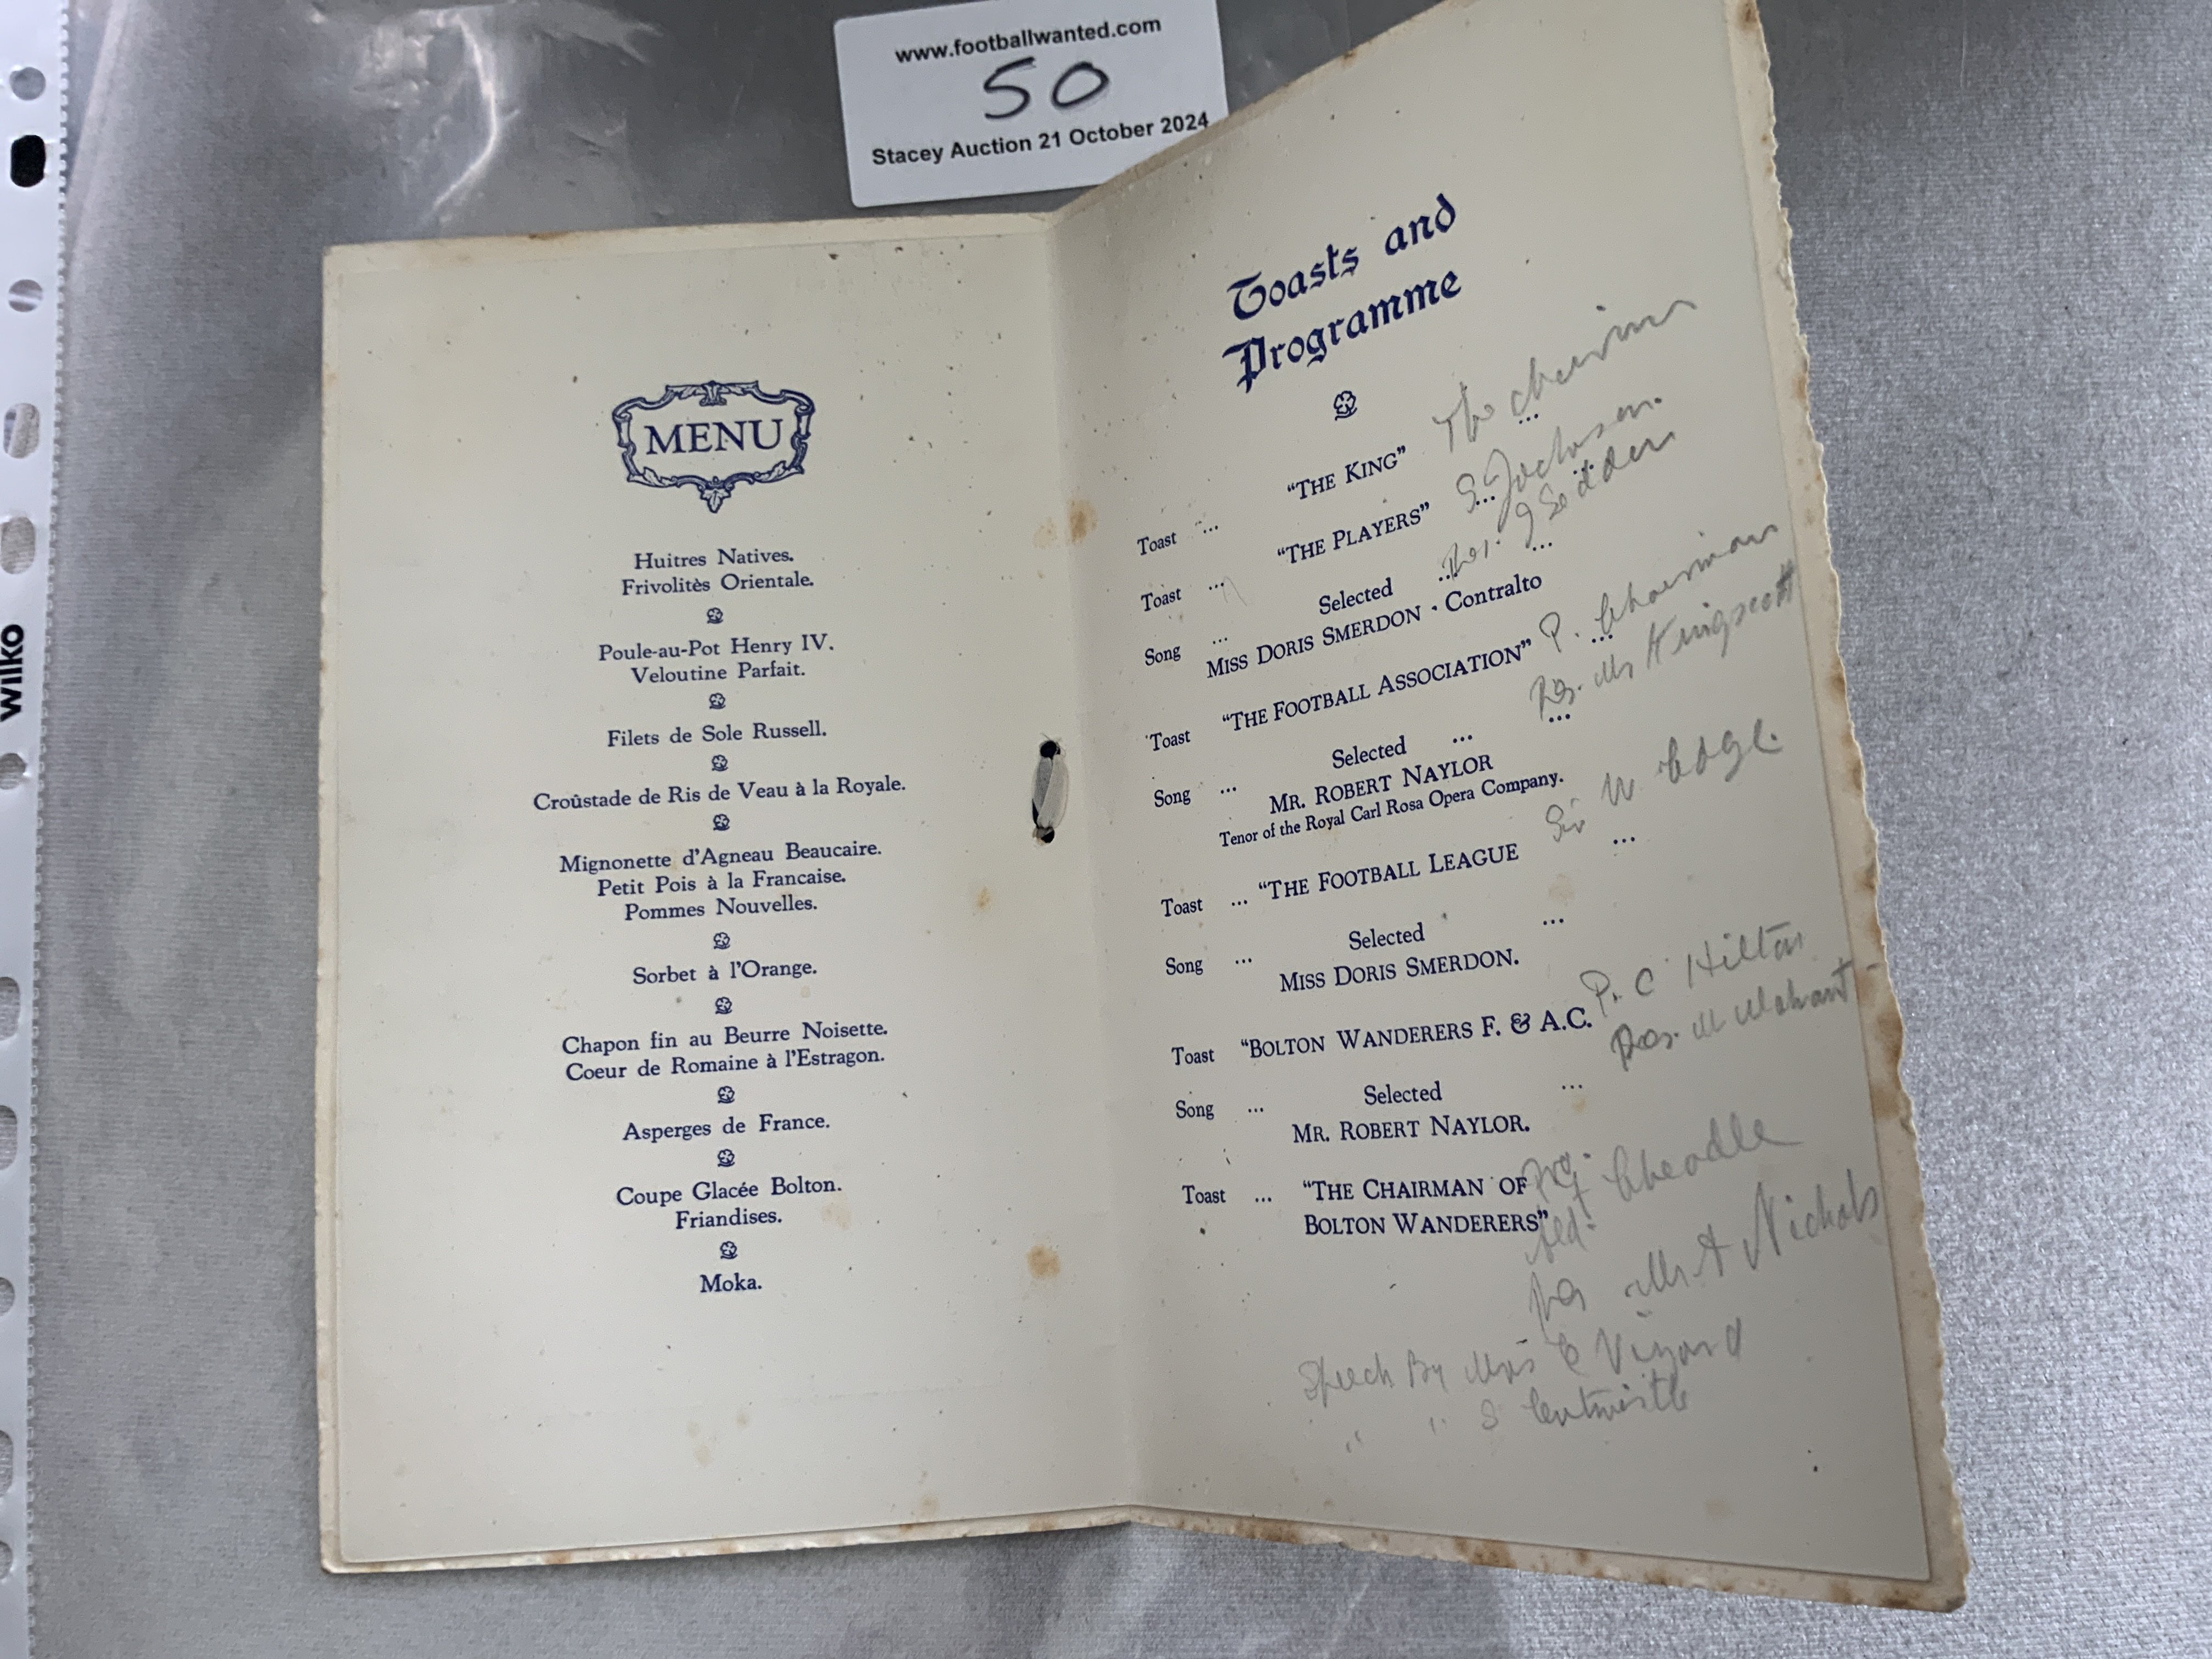 www.footballwanted.com
50
Stacey Auction 21 October 2024
wilko
MENU
Huitres Natives.
Frivolitès Orientale.
Poule-au-Pot Henry IV.
Veloutine Parfait.
Filets de Sole Russell.
Croûstade de Ris de Veau à la Royale.
Mignonette d'Agneau Beaucaire.
Petit Pois à la Francaise.
Pommes Nouvelles.
Sorbet à l'Orange.
Chapon fin au Beurre Noisette.
Coeur de Romaine à l'Estragon.
Asperges de France.
Coupe Glacée Bolton.
Friandises.
Moka.
Toasts and
Programme
Toast ... "THE KING" ... The chairman
Toast ... "THE PLAYERS" ... ...
J Seddon
Song ... Selected ... ...
MISS DORIS SMERDON · Contralto
Toast "THE FOOTBALL ASSOCIATION" ... P. Chairman
Res. Mr Kingscott
Song ... Selected ... ...
MR. ROBERT NAYLOR
Tenor of the Royal Carl Rosa Opera Company.
Toast ... "THE FOOTBALL LEAGUE ... Sir W. Edge.
Song ... Selected ...
MISS DORIS SMERDON.
Toast "BOLTON WANDERERS F. & A.C. P. C Hilton
Res.
Song ... Selected ...
MR. ROBERT NAYLOR.
Toast ... "THE CHAIRMAN OF Cheadle
BOLTON WANDERERS"
Res Mr A Nichols
Speech By Mrs E Vizard
" " S Entwistle